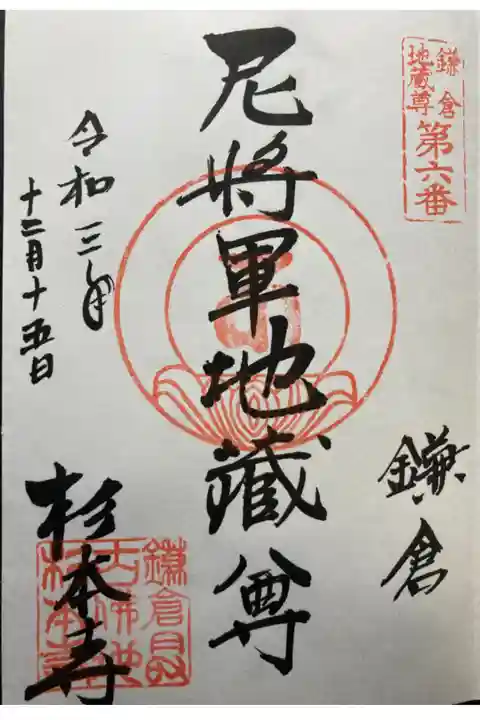 鎌倉
地蔵尊
第六番
鎌倉
尼将軍地蔵尊
令和三年
十二月十五日
杉本寺
鎌倉最
古佛地
杉本寺